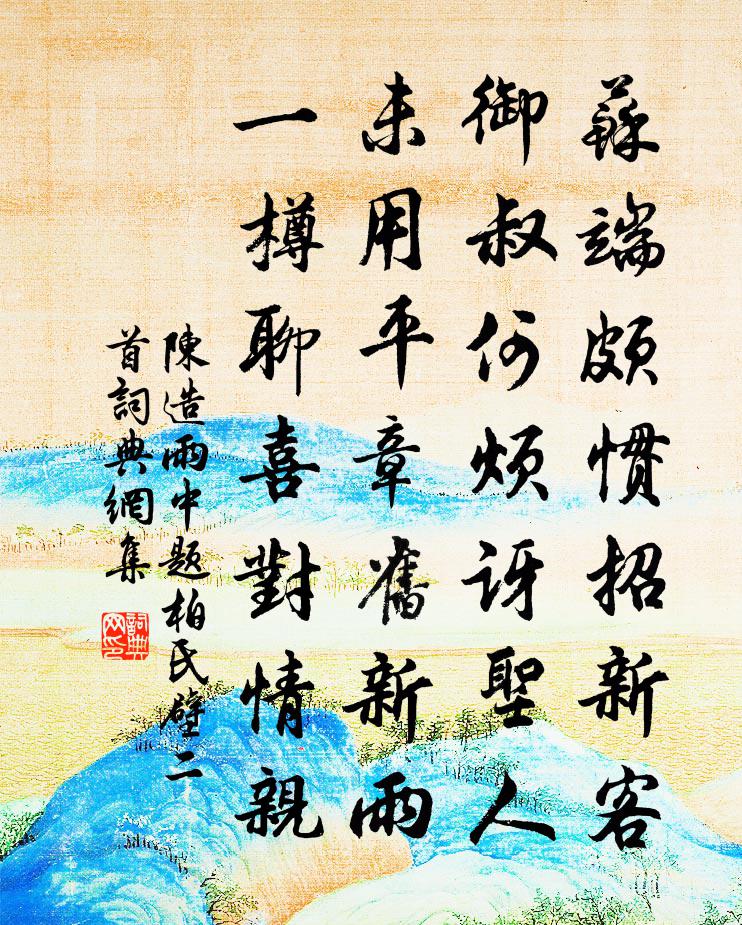 蘇端頗慣招新客
御叔何煩訝聖人
未用平章舊新雨
一樽聊喜對情親
陳造雨中題柏氏壁二
首詞典網集
詞典
网印